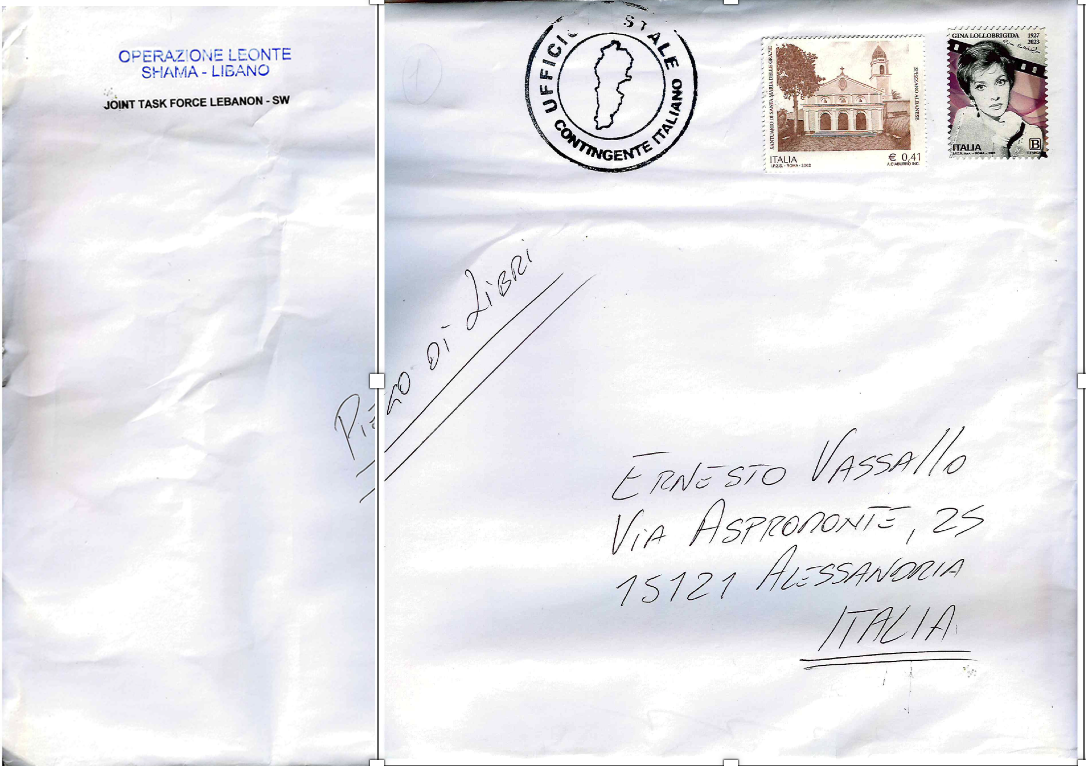 OPERAZIONE LEONTE
SHAMA - LIBANO
JOINT TASK FORCE LEBANON - SW
UFFICIO STALE
CONTINGENTE ITALIANO
SANTUARIO DI SANTA MARIA DELLE GRAZIE
SPEZZANO ALBANESE
ITALIA
€ 0,41
I.P.Z.S. - ROMA - 2002
GINA LOLLOBRIGIDA 1927
2023
ITALIA
B
PIEGO DI LIBRI
ERNESTO VASSALLO
VIA ASPROMONTE, 25
15121 ALESSANDRIA
ITALIA